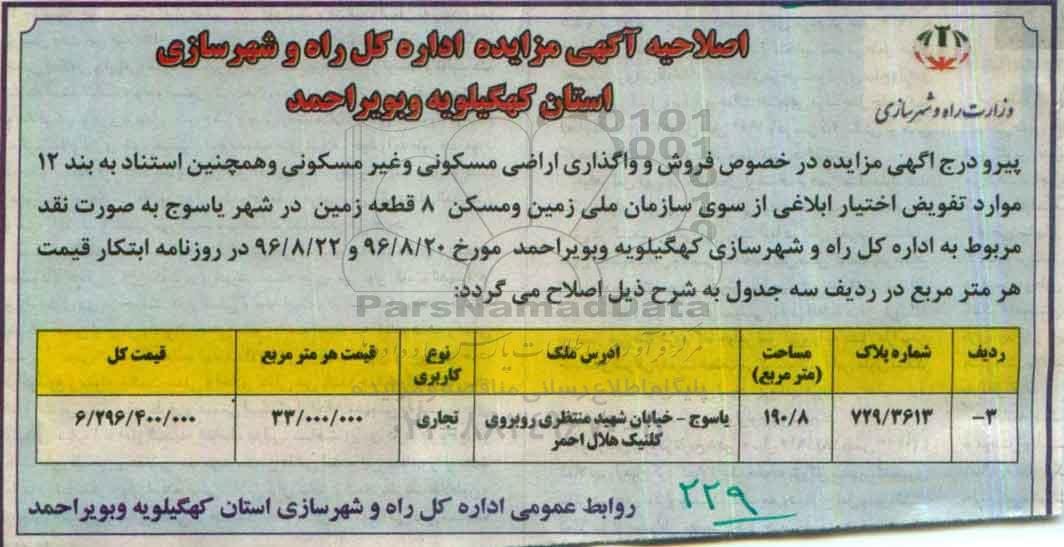 اصلاحیه آگهی مزایده اداره کل راه و شهرسازی
استان کهگیلویه وبویراحمد
وزارت راه و شهرسازی
پیرو درج اگهی مزایده در خصوص فروش و واگذاری اراضی مسکونی وغیر مسکونی وهمچنین استناد به بند ۱۲
موارد تفویض اختیار ابلاغی از سوی سازمان ملی زمین ومسکن ۸ قطعه زمین در شهر یاسوج به صورت نقد
مربوط به اداره کل راه و شهرسازی کهگیلویه وبویراحمد مورخ ۹۶/۸/۲۰ و ۹۶/۸/۲۲ در روزنامه ابتکار قیمت
هر متر مربع در ردیف سه جدول به شرح ذیل اصلاح می گردد:
ParsNamadData
ردیف شماره پلاک مساحت (متر مربع) ادرس ملک نوع کاربری قیمت هر متر مربع قیمت کل
۳- ۷۲۹/۳۶۱۳ ۱۹۰/۸ یاسوج - خیابان شهید منتظری روبروی کلنیک هلال احمر تجاری ۳۳/۰۰۰/۰۰۰ ۶/۲۹۶/۴۰۰/۰۰۰
۲۲۹
روابط عمومی اداره کل راه و شهرسازی استان کهگیلویه وبویراحمد